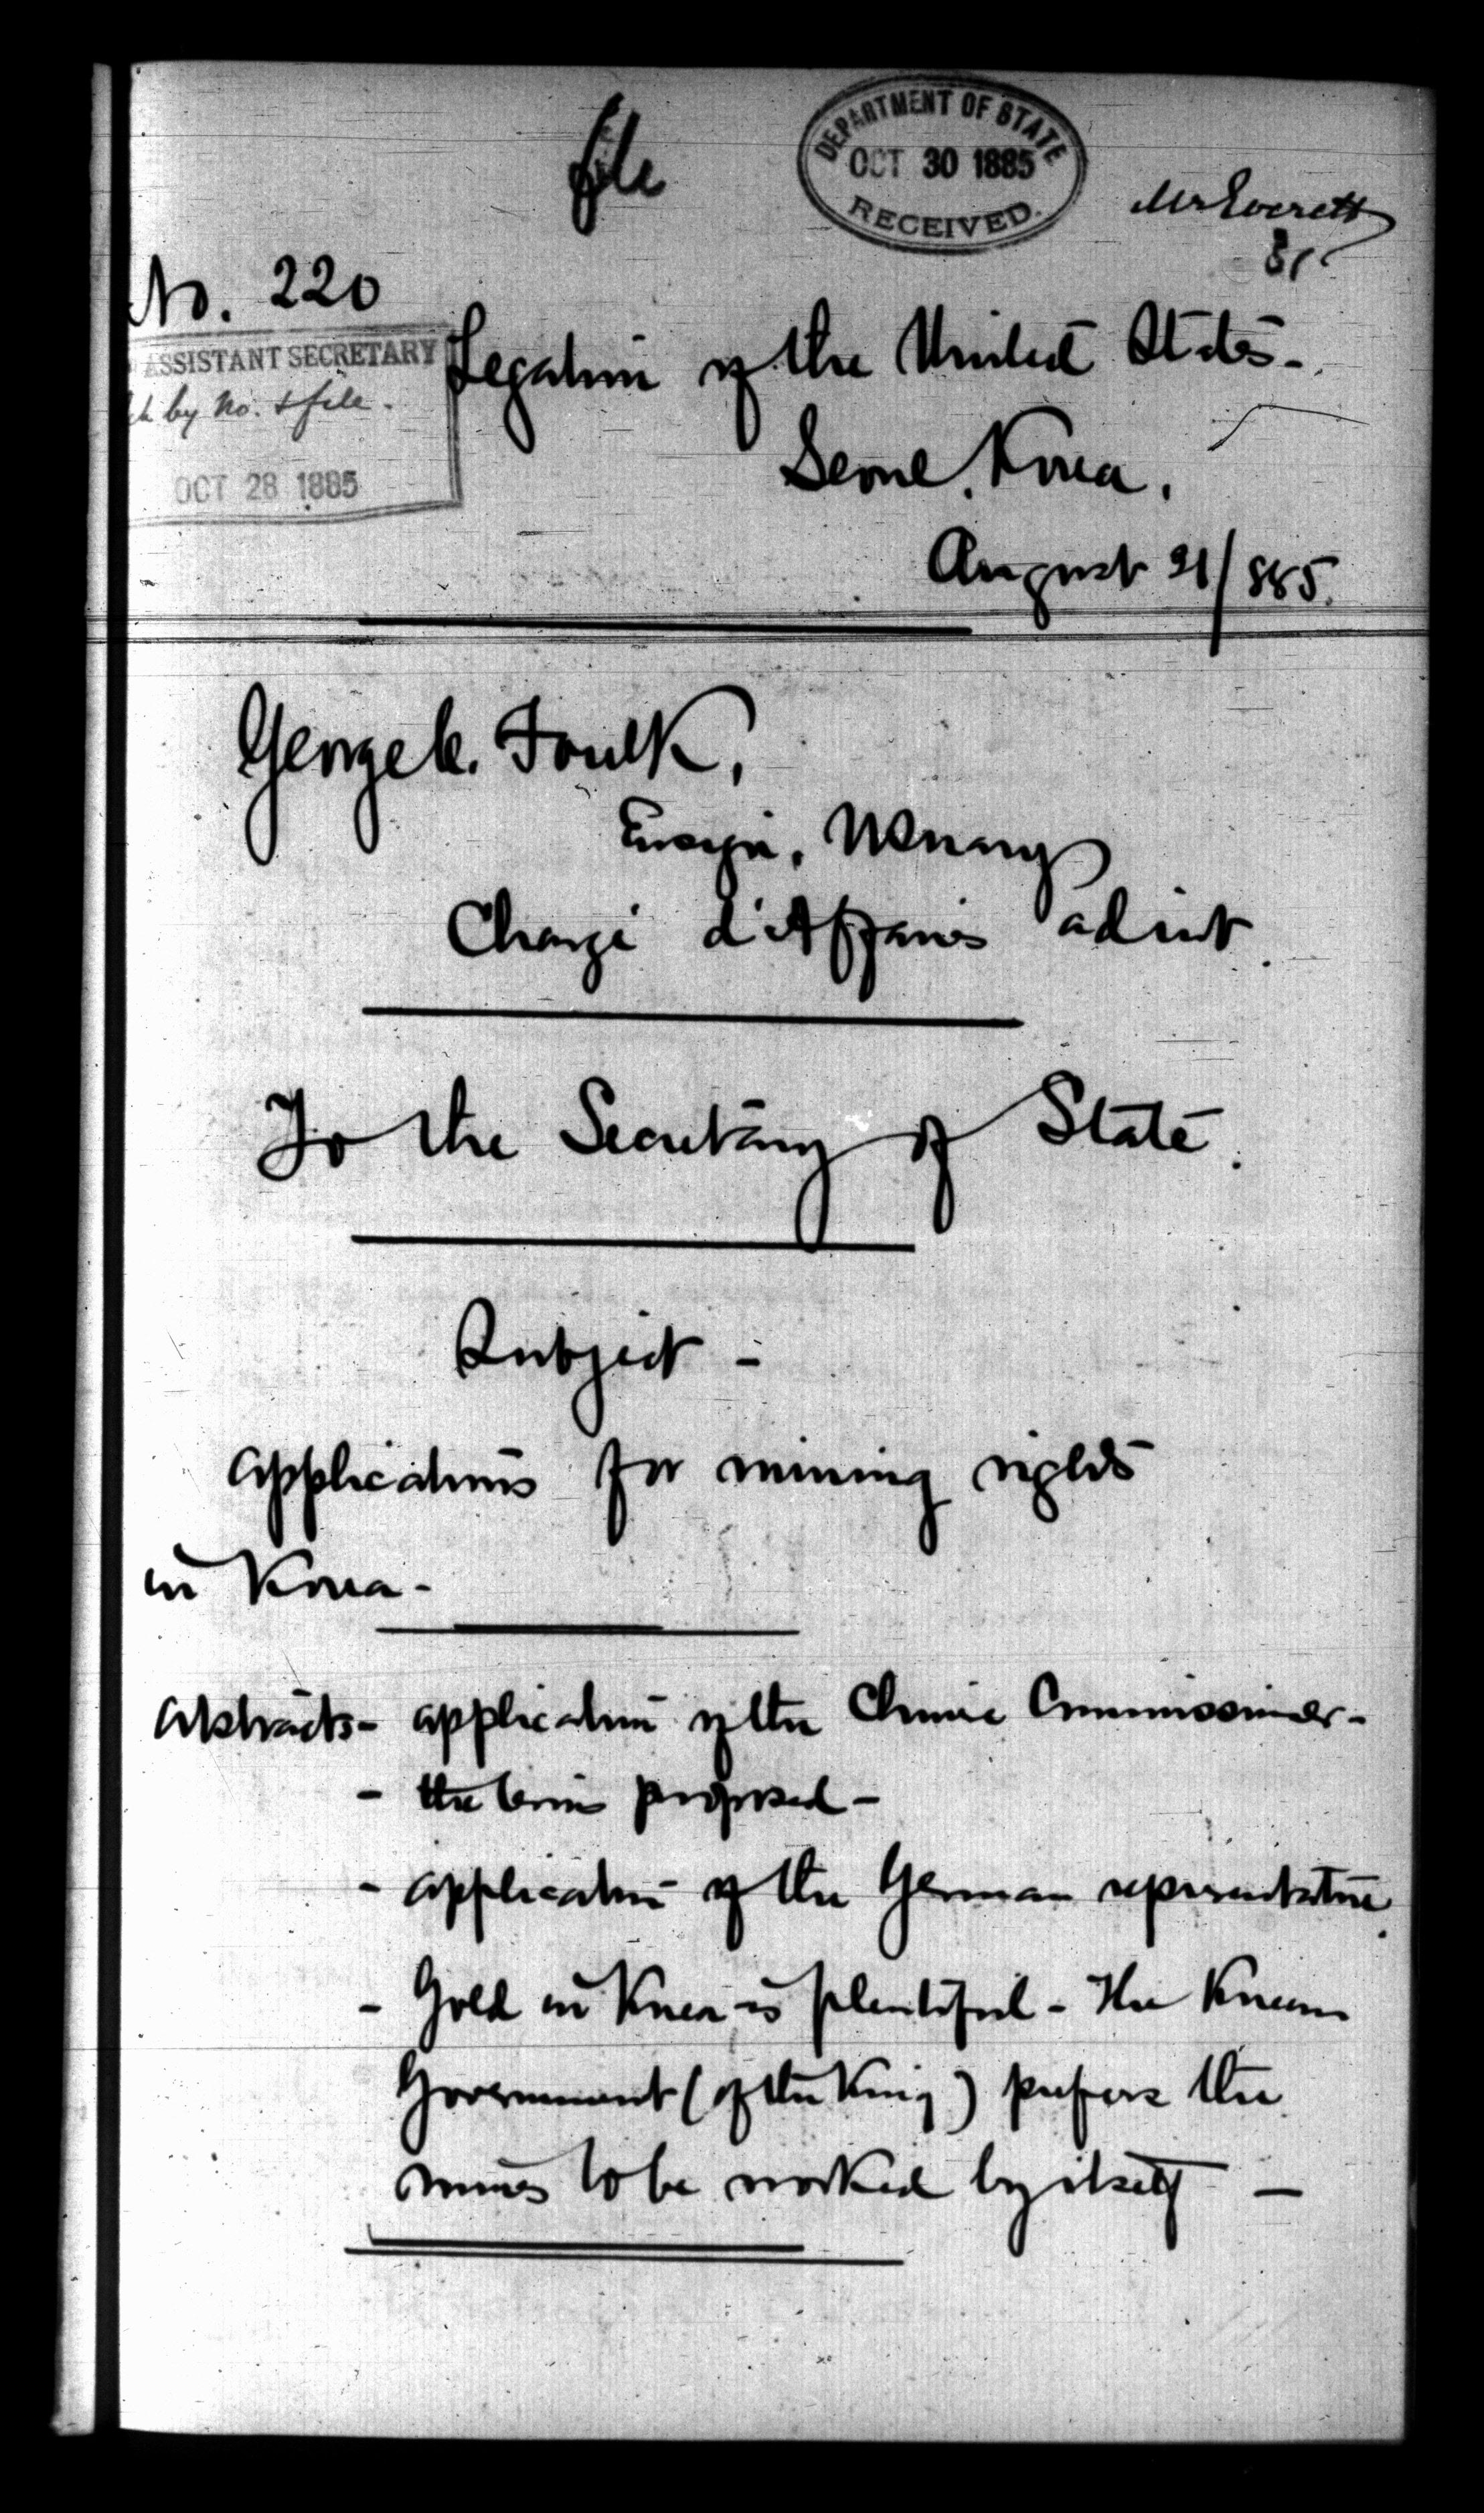 file
DEPARTMENT OF STATE
OCT 30 1885
RECEIVED.
Mr Everett
No. 220
ASSISTANT SECRETARY
by No. & file.
OCT 28 1885
Legation of the United States-
Seoul, Korea,
August 21/885.
George C. Foulk,
Ensign, U.S. Navy
Chargé d'Affaires ad int.
To the Secretary of State.
Subject -
Applications for mining rights
in Korea-
Abstracts- Application of the Chinese Commissioner-
- the terms proposed-
- Application of the German representative.
- Gold in Korea is plentiful - The Korean
Government (of the King) prefers the
mines to be worked by itself -